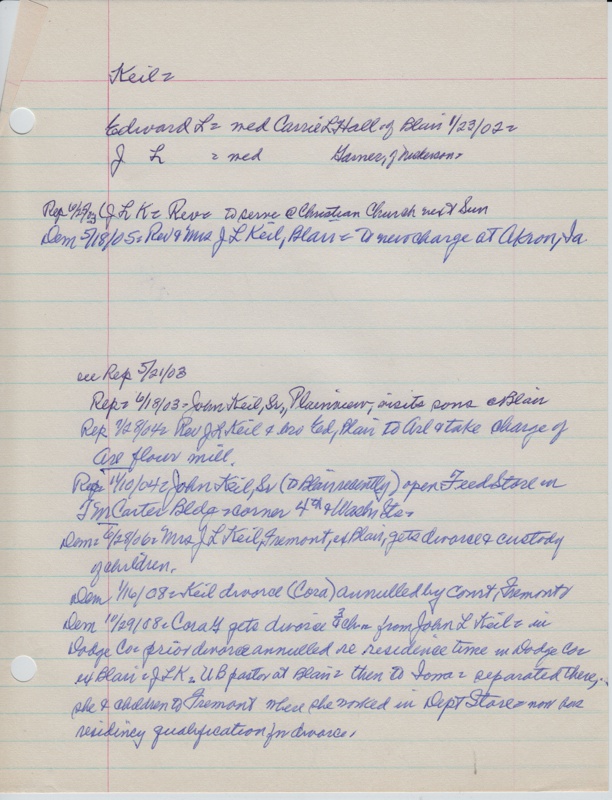 Keil =
Edward L = med Carrie L Hall of Blair 1/23/02 =
J L = med Garner, of Nickerson =
Rep 4/25/03 (J L K = Rev = to serve @ Christian Church next Sun
Dem 5/18/05 = Rev & Mrs J L Keil, Blair = to new charge at Akron, Ia
see Rep 5/21/03
Rep = 6/18/03 = John Keil, Sr, Plainview, visits sons @ Blair
Rep 7/28/04 = Rev J L Keil & bro Ed, Blair to Arl & take charge of
Arl flour mill.
Rep 11/10/04 = John Keil, Sr (to Blair recently) open Feed Store in
T M Carter Bldg = corner 4th & Wash Sts =
Dem = 6/28/06 = Mrs J L Keil, Fremont, ex Blair, gets divorce & custody
of children.
Dem 1/16/08 = Keil divorce (Cora) annulled by court, Fremont
Dem 10/29/08 = Cora gets divorce & 3 chn from John L Keil = in
Dodge Co = prior divorce annulled re residence time in Dodge Co =
ex Blair = J L K = UB pastor at Blair = then to Iowa = separated there,
she & children to Fremont where she worked in Dept Store = now has
residency qualification for divorce.